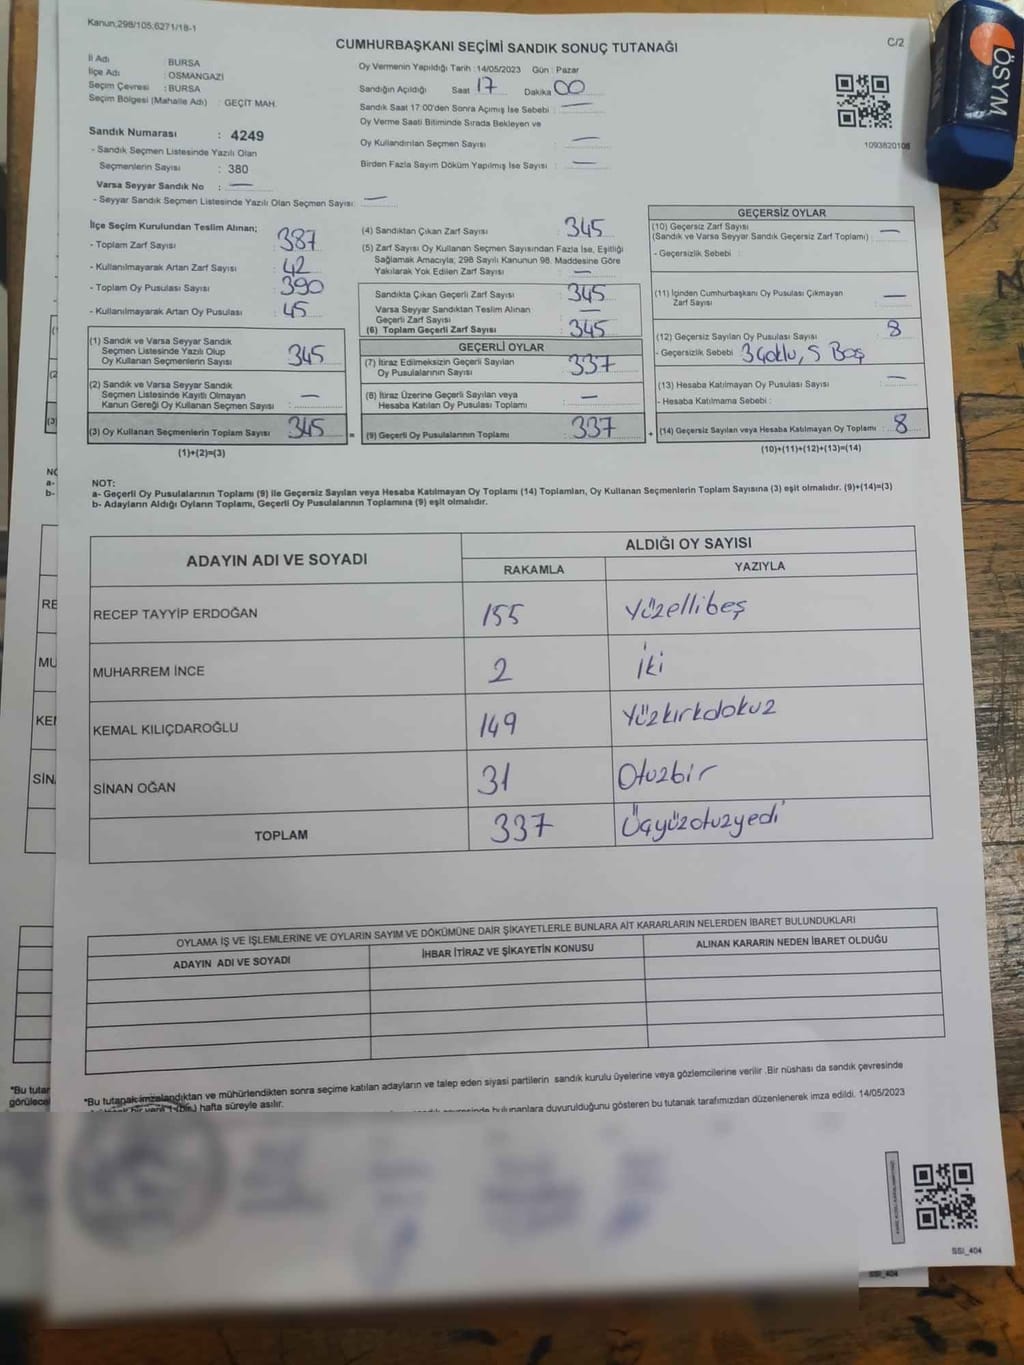 Kanun,298/105,6271/18-1
C/2
CUMHURBAŞKANI SEÇİMİ SANDIK SONUÇ TUTANAĞI
İl Adı : BURSA
İlçe Adı : OSMANGAZİ
Seçim Çevresi : BURSA
Seçim Bölgesi (Mahalle Adı) : GEÇİT MAH.
Sandık Numarası : 4249
- Sandık Seçmen Listesinde Yazılı Olan
Seçmenlerin Sayısı : 380
Varsa Seyyar Sandık No : —
- Seyyar Sandık Seçmen Listesinde Yazılı Olan Seçmen Sayısı: —
Oy Vermenin Yapıldığı Tarih : 14/05/2023 Gün : Pazar
Sandığın Açıldığı Saat 17 Dakika 00
Sandık Saat 17:00'den Sonra Açımış İse Sebebi : —
Oy Verme Saati Bitiminde Sırada Bekleyen ve
Oy Kullandırılan Seçmen Sayısı : —
Birden Fazla Sayım Döküm Yapılmış İse Sayısı : —
1093820108
ÖSYM
İlçe Seçim Kurulundan Teslim Alınan;
- Toplam Zarf Sayısı : 387
- Kullanılmayarak Artan Zarf Sayısı : 42
- Toplam Oy Pusulası Sayısı : 390
- Kullanılmayarak Artan Oy Pusulası : 45
(1) Sandık ve Varsa Seyyar Sandık
Seçmen Listesinde Yazılı Olup
Oy Kullanan Seçmenlerin Sayısı : 345
(2) Sandık ve Varsa Seyyar Sandık
Seçmen Listesinde Kayıtlı Olmayan
Kanun Gereği Oy Kullanan Seçmen Sayısı : —
(3) Oy Kullanan Seçmenlerin Toplam Sayısı : 345 =
(1)+(2)=(3)
(4) Sandıktan Çıkan Zarf Sayısı : 345
(5) Zarf Sayısı Oy Kullanan Seçmen Sayısından Fazla İse, Eşitliği
Sağlamak Amacıyla; 298 Sayılı Kanunun 98. Maddesine Göre
Yakılarak Yok Edilen Zarf Sayısı : —
Sandıkta Çıkan Geçerli Zarf Sayısı : 345
Varsa Seyyar Sandıktan Teslim Alınan
Geçerli Zarf Sayısı : —
(6) Toplam Geçerli Zarf Sayısı : 345
GEÇERLİ OYLAR
(7) İtiraz Edilmeksizin Geçerli Sayılan
Oy Pusulalarının Sayısı : 337
(8) İtiraz Üzerine Geçerli Sayılan veya
Hesaba Katılan Oy Pusulası Toplamı : —
(9) Geçerli Oy Pusulalarının Toplamı : 337 +
GEÇERSİZ OYLAR
(10) Geçersiz Zarf Sayısı
(Sandık ve Varsa Seyyar Sandık Geçersiz Zarf Toplamı) : —
- Geçersizlik Sebebi :
(11) İçinden Cumhurbaşkanı Oy Pusulası Çıkmayan
Zarf Sayısı : —
(12) Geçersiz Sayılan Oy Pusulası Sayısı : 8
- Geçersizlik Sebebi 3 Çoklu, 5 Boş
(13) Hesaba Katılmayan Oy Pusulası Sayısı : —
- Hesaba Katılmama Sebebi :
(14) Geçersiz Sayılan veya Hesaba Katılmayan Oy Toplamı : 8
(10)+(11)+(12)+(13)=(14)
NOT:
a- Geçerli Oy Pusulalarının Toplamı (9) ile Geçersiz Sayılan veya Hesaba Katılmayan Oy Toplamı (14) Toplamları, Oy Kullanan Seçmenlerin Toplam Sayısına (3) eşit olmalıdır. (9)+(14)=(3)
b- Adayların Aldığı Oyların Toplamı, Geçerli Oy Pusulalarının Toplamına (9) eşit olmalıdır.
ADAYIN ADI VE SOYADI ALDIĞI OY SAYISI
RAKAMLA YAZIYLA
RECEP TAYYİP ERDOĞAN 155 Yüzellibeş
MUHARREM İNCE 2 İki
KEMAL KILIÇDAROĞLU 149 Yüzkırkdokuz
SİNAN OĞAN 31 Otuzbir
TOPLAM 337 Üçyüzotuzyedi
OYLAMA İŞ VE İŞLEMLERİNE VE OYLARIN SAYIM VE DÖKÜMÜNE DAİR ŞİKAYETLERLE BUNLARA AİT KARARLARIN NELERDEN İBARET BULUNDUKLARI
ADAYIN ADI VE SOYADI İHBAR İTİRAZ VE ŞİKAYETİN KONUSU ALINAN KARARIN NEDEN İBARET OLDUĞU
*Bu tutanak imzalandıktan ve mühürlendikten sonra seçime katılan adayların ve talep eden siyasi partilerin sandık kurulu üyelerine veya gözlemcilerine verilir .Bir nüshası da sandık çevresinde
hafta süreyle asılır.
bulunanlara duyurulduğunu gösteren bu tutanak tarafımızdan düzenlenerek imza edildi. 14/05/2023
SSI_404
SSI_404